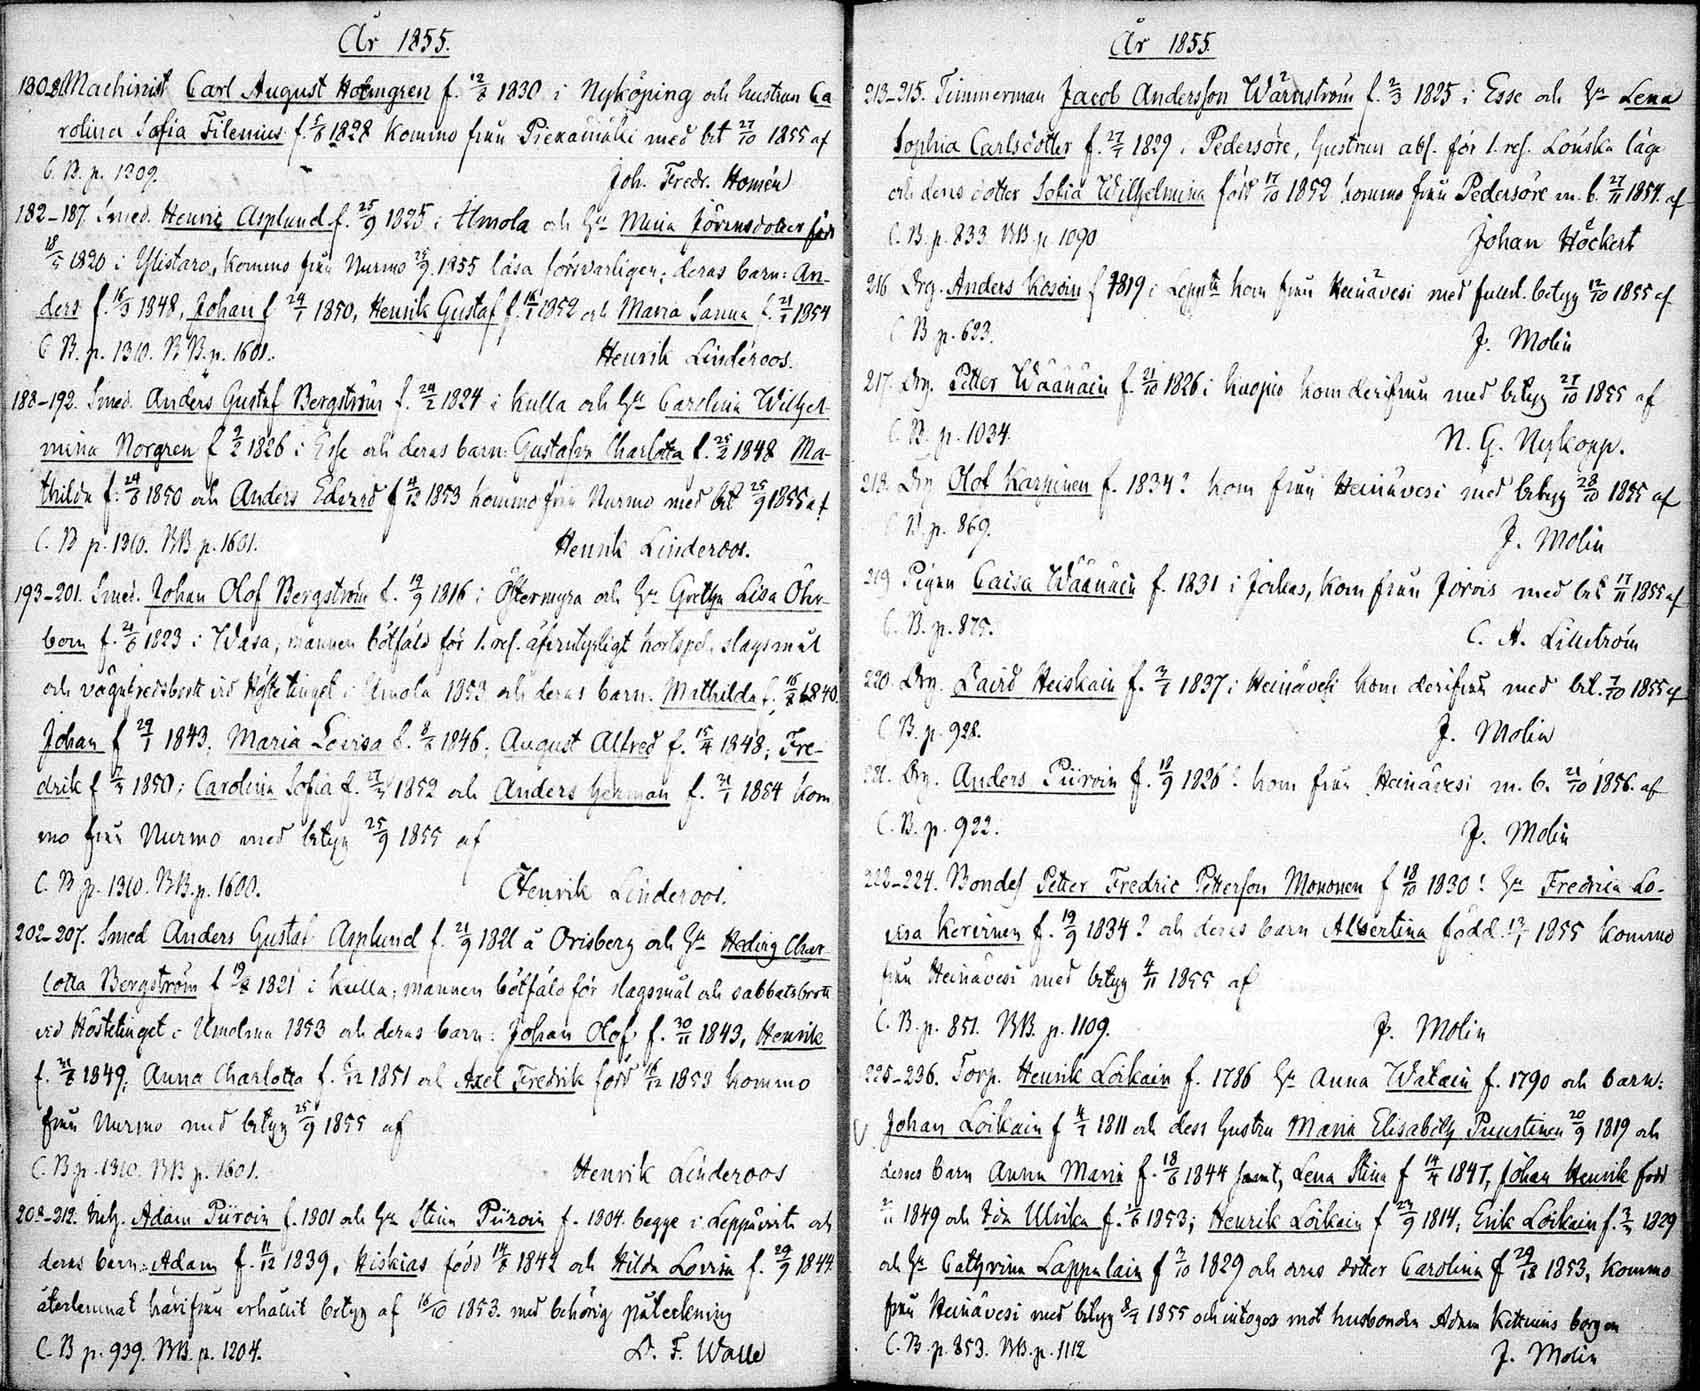 År 1855.
180-81. Machinist Carl August Holmgren f. 12/8 1830 i Nyköping och hustrun Ca
rolina Sofia Filenius f. 5/8 1828 kommo från Pieksämäki med bet 27/10 1855 af
C. B. p. 1309. Joh. Fredr. Homén
182-187. Smed. Henric Asplund f. 25/9 1825 i Ilmola och Hu Maria Jöransdotter född
18/5 1820 i Ylistaro, kommo från Nurmo 25/9 1855 läsa försvarligen; deras barn: An-
ders f. 16/3 1848, Johan f 24/1 1850, Henrik Gustaf f. 16/1 1852 och Maria Sanna f. 21/1 1854
C B. p. 1310. BB. p. 1601. Henrik Linderoos.
188-192. Smed. Anders Gustaf Bergström f. 24/2 1824 i Kulla och Hu Carolina Wilhel-
mina Norgren f 2/2 1826 i Esse och deras barn: Gustafva Charlotta f. 25/2 1848 Ma-
thilda f. 24/8 1850 och Anders Edvard f 4/12 1853 kommo från Nurmo med bet 25/9 1855 af
C. B p. 1310. BB p. 1601. Henrik Linderoos.
193-201. Smed. Johan Olof Bergström f. 19/9 1816 i Östermyra och Hu Gretha Lisa Öhr-
bom f. 21/6 1823 i Wasa, mannen bötfäld för 1. res. kortspel, slagsmål
och vid Höstetinget i Ilmola 1853 och deras barn: Mathilda f. 16/8 1840
Johan f 29/1 1843; Maria Lovisa f. 8/8 1846; August Alfred f. 15/4 1848; Fre-
drik f 1850; Carolina Sofia f. 1852 och Anders Herman f. 21/1 1854 kom
mo från Nurmo med betyg 25/9 1855 af
C. B p. 1310. BB. p. 1600. Henrik Linderoos.
202-207. Smed Anders Gustaf Asplund f. 21/9 1821 å Orisberg och Hu Hedvig Char-
lotta Bergström f 19/8 1821 i Kulla; mannen bötfäld för slagsmål och sabbatsbrott
vid Höstetinget i Ilmola 1853 och deras barn: Johan Olof f. 30/11 1843, Henrik
f. 21/8 1849; Anna Charlotta f. 6/12 1851 och Axel Fredrik född 16/12 1853 kommo
från Nurmo med betyg 25/9 1855 af
C. B p. 1310. BB p. 1601. Henrik Linderoos
208-212. Adam Piiroin f. 1801 och Hu Stina Piiroin f. 1804 begge i Leppävirta och
deras barn: Adam f. 11/12 1839, Hiskias född 14/8 1842 och Hilda Lovisa f. 29/9 1844
återlemnat härifrån erhållit betyg af 16/10 1853. med behörig påteckning
C. B p. 939. BB. p. 1204. D. F. Walle
År 1855.
213-215. Timmerman Jacob Andersson Wärnström f. 2/3 1825 i Esse och Hu Lena
Sophia Carlsdotter f. 27/1 1829 i Pedersöre, hustrun abs. för 1. res. Lönska läge
och deras dotter Sofia Wilhelmina född 17/10 1852 kommo från Pedersöre m. b. 27/11 1854. af
C. B. p. 833. BB. p. 1090 Johan Höckert
216 Drg. Anders Kosoin f 1819 i kom från Heinävesi med betyg 12/10 1855 af
C B p. 623. J. Molin
217. Drg. Petter Wäänäin f. 21/10 1826 i Kuopio kom derifrån med betyg 27/10 1855 af
C. B. p. 1034. N. G. Nykopp.
218. Drg Olof Karpinen f. 1834? kom från Heinävesi med betyg 28/10 1855 af
C B. p. 869. J. Molin
219 Pigan Caisa Wäänäin f. 1831 i Jokas, kom från Jorois med bet 17/11 1855 af
C. B. p. 875. C. A. Lilieström
220. Drg. David Heiskain f. 1837 i Heinävesi kom derifrån med bet. 7/10 1855 af
C B. p. 928. J. Molin
221. Drg. Anders Piiroin f. 18/9 1826? kom från Heinävesi m. b. 21/10 1856. af
C. B. p. 922. J. Molin
222-224. Bondes. Petter Fredric Petterson Mononen f 18/10 1830? Hu Fredrica Lo-
visa Kervinen f. 19/9 1834? och deras barn Albertina född 1855 kommo
från Heinävesi med betyg 4/11 1855 af
C. B. p. 851. BB. p. 1109. J. Molin
225-236. Torp. Henrik Loikain f. 1786 Hu Anna Watain f. 1790 och barn:
Johan Loikain f 4/1 1811 och dess hustru Maria Elisabeth Puustinen 20/9 1819 och
deras barn Anna Maria f. 18/6 1844 samt, Lena Stina f 14/4 1847, Johan Henrik född
1849 och Ida Ulrika f. 1853; Henrik Loikain f 24/9 1814; Erik Loikain f. 1829
och Hu Cathrina Lappalain f 2/10 1829 och deras dotter Carolina f 29/12 1853, kommo
från Heinävesi med betyg 1855 och intogos mot husbonden Adam borgen
C. B. p. 853. BB. p. 1112 J. Molin